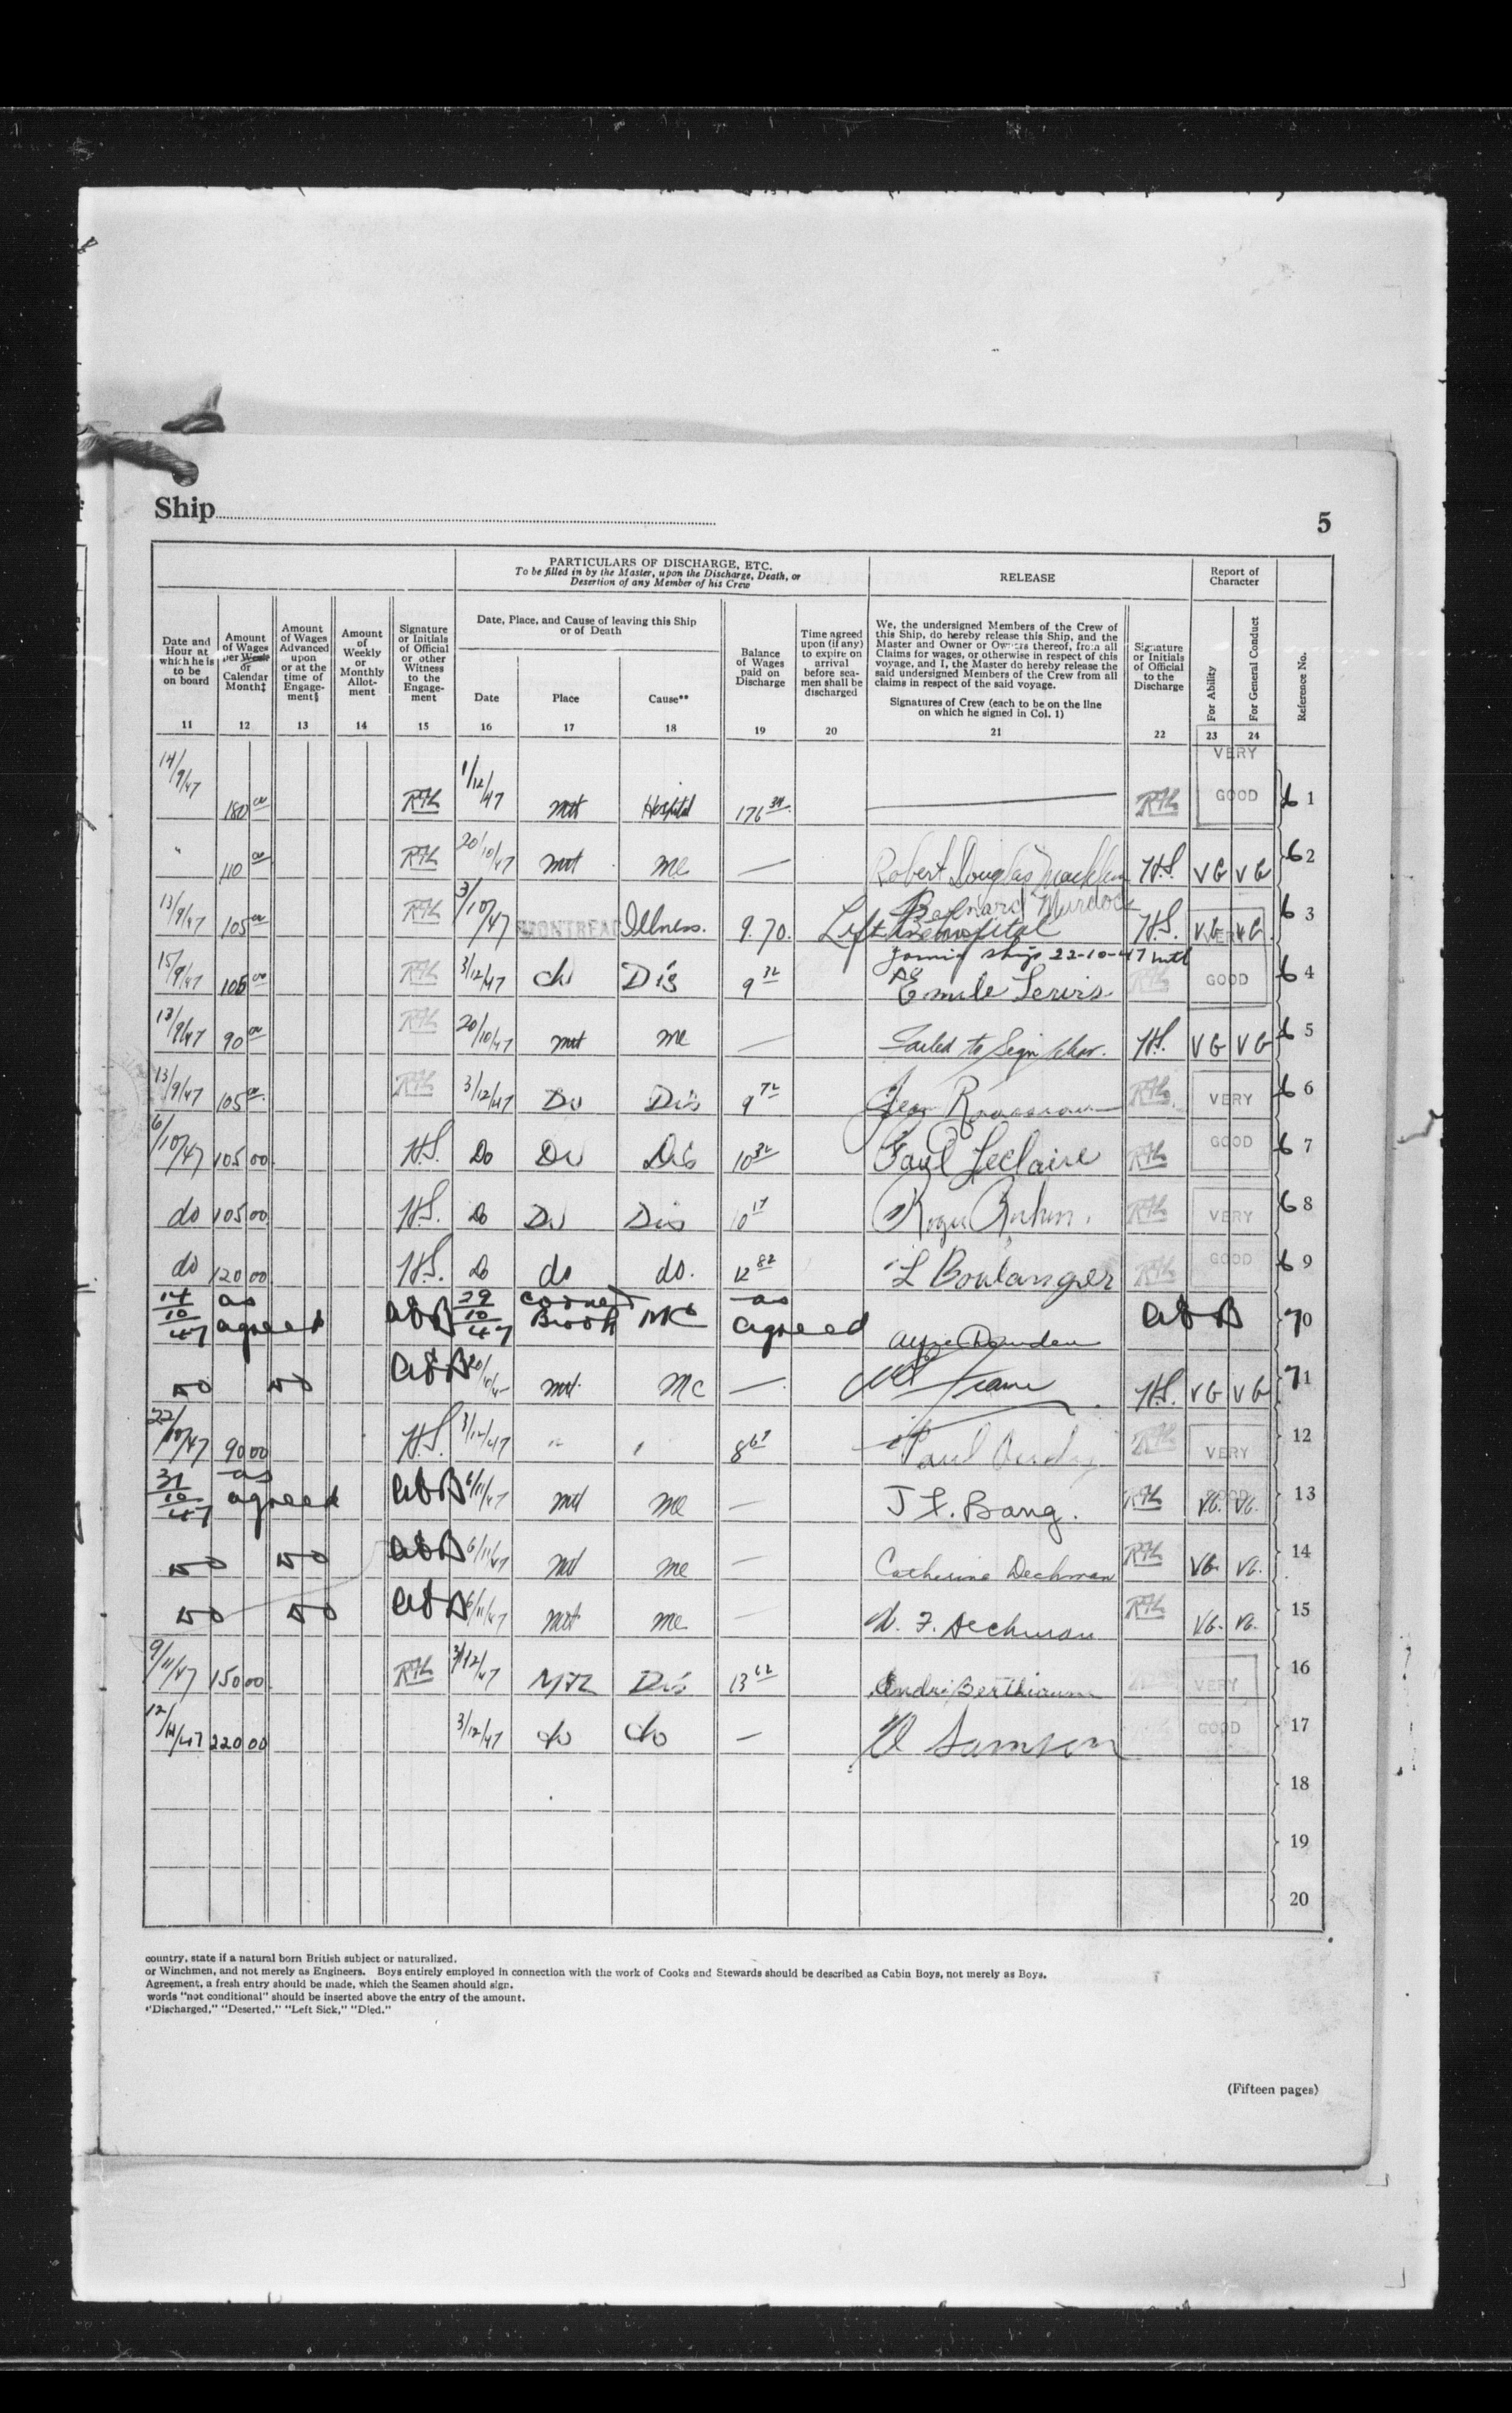 Ship
5
PARTICULARS OF DISCHARGE, ETC.
To be filled in by the Master, upon the Discharge, Death, or
Desertion of any Member of his Crew
RELEASE
Report of
Character
Date and
Hour at
which he is
to be
on board
Amount
of Wages
per Week
or
Calendar
Month‡
Amount
of Wages
Advanced
upon
or at the
time of
Engage-
ment§
Amount
of
Weekly
or
Monthly
Allot-
ment
Signature
or Initials
of Official
or other
Witness
to the
Engage-
ment
Date, Place, and Cause of leaving this Ship
or of Death
Date
Place
Cause**
Balance
of Wages
paid on
Discharge
Time agreed
upon (if any)
to expire on
arrival
before sea-
men shall be
discharged
We, the undersigned Members of the Crew of
this Ship, do hereby release this Ship, and the
Master and Owner or Owners thereof, from all
Claims for wages, or otherwise in respect of this
voyage, and I, the Master do hereby release the
said undersigned Members of the Crew from all
claims in respect of the said voyage.
Signatures of Crew (each to be on the line
on which he signed in Col. 1)
Signature
or Initials
of Official
to the
Discharge
For Ability
For General Conduct
Reference No.
11 12 13 14 15 16 17 18 19 20 21 22 23 24
14/9/47 180 00 1/12/47 Hospital 176 VERY GOOD 6 1
" 110 00 20/10/47 mc — Robert Douglas H.S. VG VG 6 2
13/9/47 105 00 3/10/47 MONTREAL Illness. 9.70. Bernard Murdock Left in Hospital H.S. VG VG 6 3
joined ship 22-10-47 mtl
15/9/47 3/12/47 do Dis 9 32 Emile GOOD 6 4
13/9/47 90 00 20/10/47 mc — Failed to Sign H.S. VG VG 6 5
13/9/47 105 00 3/12/47 Do Dis 9 72 Jean VERY 6 6
6/10/47 105 00 H.S. Do Do Dis 10 32 Paul Leclaire GOOD 6 7
do 105 00 H.S. Do Do Dis 10 17 Roger VERY 6 8
do 120 00 H.S. Do do do. 12 82 L Boulanger GOOD 6 9
14/10/47 as agreed 29/10/47 Corner Brook MC as agreed 70
Do Do mc — H.S. VG VG 71
22/10/47 90 00 H.S. 3/12/47 " " 8 67 Paul VERY 12
31/10/47 as agreed 6/11/47 mc — J F. Bang. VG. VG. 13
Do Do 6/11/47 mc — Catherine Dechman VG. VG. 14
Do Do 6/11/47 mc — Dechman VG. VG. 15
9/11/47 150 00 3/12/47 Mtl Dis 13 62 Andre Berthiaume VERY 16
12/11/47 220 00 3/12/47 do do — Samson GOOD 17
18
19
20
country, state if a natural born British subject or naturalized.
or Winchmen, and not merely as Engineers. Boys entirely employed in connection with the work of Cooks and Stewards should be described as Cabin Boys, not merely as Boys.
Agreement, a fresh entry should be made, which the Seamen should sign.
words "not conditional" should be inserted above the entry of the amount.
"Discharged," "Deserted," "Left Sick," "Died."
(Fifteen pages)